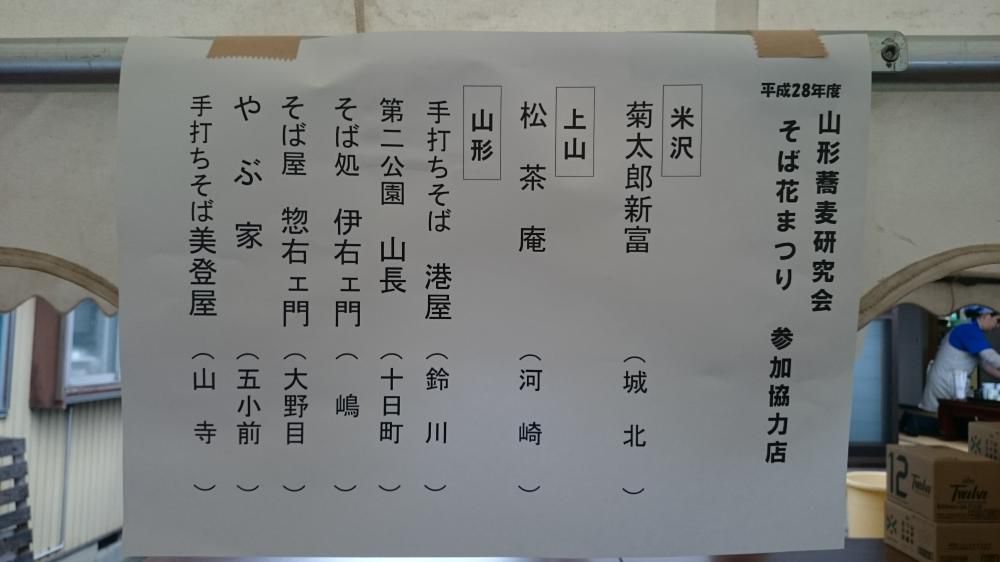 平成28年度
山形蕎麦研究会
そば花まつり 参加協力店
米沢
菊太郎新富 （城北）
上山
松茶庵 （河崎）
山形
手打ちそば 港屋 （鈴川）
第二公園 山長 （十日町）
そば処 伊右ェ門 （嶋）
そば屋 惣右ェ門 （大野目）
やぶ家 （五小前）
手打ちそば美登屋 （山寺）
12
Twelve
Twelve